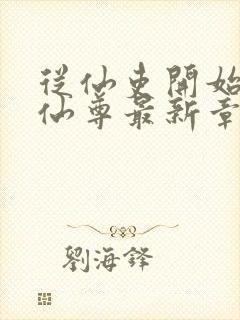 從仙吏開始
仙尊最新章
劉海鋒